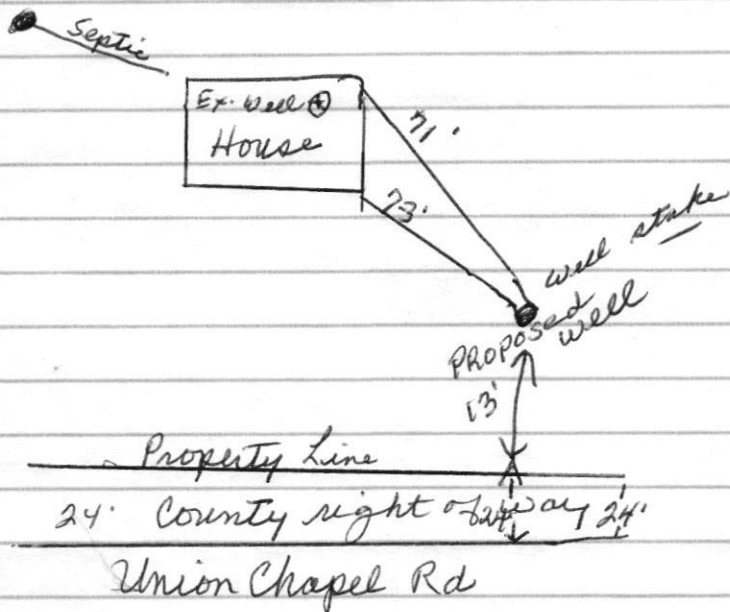 Septic
Ex. Well
House
71'
73'
Well stake
PROPOSED
Well
13'
Property Line
24' County right of way 24' 24'
Union Chapel Rd